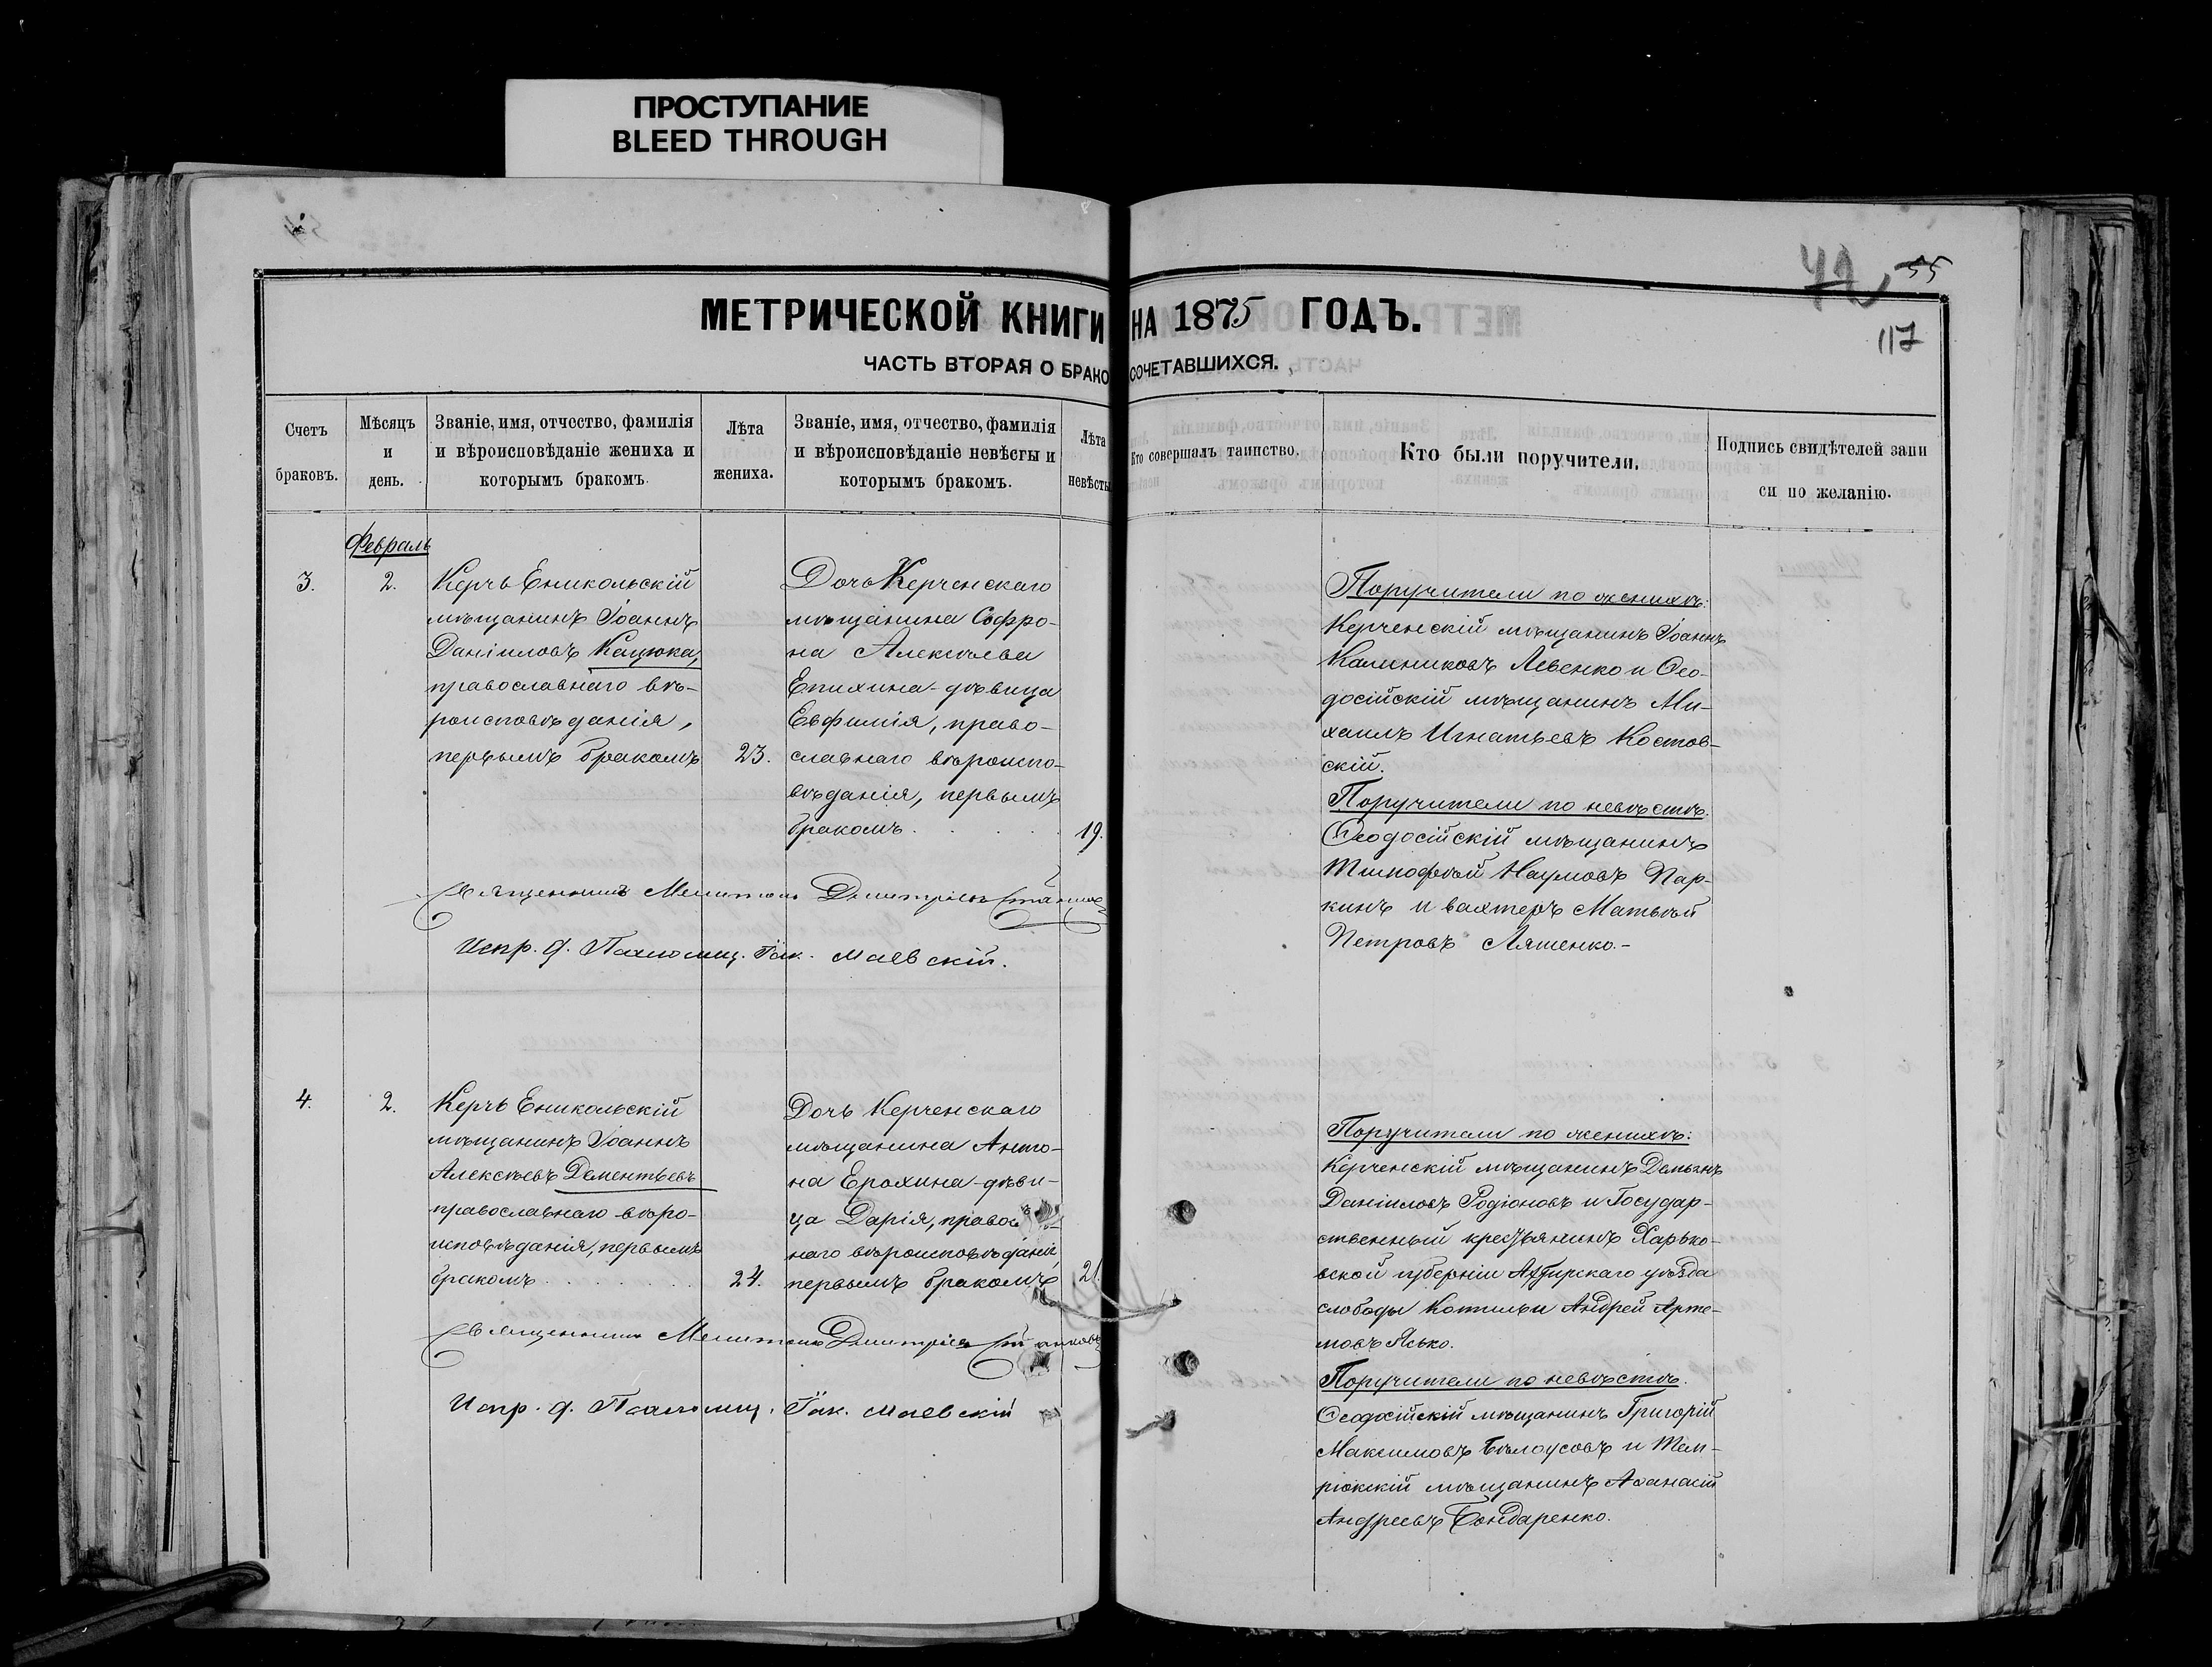 ПРОСТУПАНИЕ
BLEED THROUGH
55
117
МЕТРИЧЕСКОЙ КНИГИ НА 1875 ГОДЪ.
ЧАСТЬ ВТОРАЯ О БРАКОСОЧЕТАВШИХСЯ.
Счетъ
браковъ.
Мѣсяцъ
и
день.
Званіе, имя, отчество, фамилія
и вѣроисповѣданіе жениха и
которымъ бракомъ.
Лѣта
жениха.
Званіе, имя, отчество, фамилія
и вѣроисповѣданіе невѣсты и
которымъ бракомъ.
Лѣта
невѣсты
Кто совершалъ таинство.
Кто были поручители.
Подпись свидѣтелей запи
си по желанію.
Февраль
3.
2.
Керчь Еникольскій
мѣщанинъ Іоаннъ
Даніиловъ Кацюка,
православнаго вѣ-
роисповѣданія,
первымъ бракомъ
23.
Дочь Керченскаго
мѣщанина Софро-
на Алексѣева
Епихина-дѣвица
Евфимія, право-
славнаго вѣроиспо-
вѣданія, первымъ
бракомъ.
19.
Поручители по женихѣ:
Керченскій мѣщанинъ Іоаннъ
Калиниковъ Левенко и Ѳео-
досійскій мѣщанинъ Ми-
хаилъ Игнатьевъ Костов-
скій.
Поручители по невѣстѣ.
Ѳеодосійскій мѣщанинъ
Тимофей Наумовъ Пар-
кинъ и вахтеръ Матвѣй
Петровъ Ляшенко.-
Священникъ Мелитонъ Димитріевъ
Испр. д. Псаломщ. Іак. Маевскій.
4.
2.
Керчь Еникольскій
мѣщанинъ Іоаннъ
Алексѣевъ Дементьевъ
православнаго вѣро-
исповѣданія, первымъ
бракомъ
24.
Дочь Керченскаго
мѣщанина Анто-
на Ерохина-дѣви-
ца Дарія,
наго вѣроисповѣданія,
первымъ бракомъ
21.
Поручители по женихѣ:
Керченскій мѣщанинъ Демьянъ
Даніиловъ Родіоновъ и Государ-
ственный крестьянинъ Харько-
вской губерніи Ахтирскаго уѣзда
слободы Котельвы Андрей Арте-
мовъ Ясько.
Поручители по невѣстѣ.
Ѳеодосійскій мѣщанинъ Григорій
Максимовъ Бѣлоусовъ и Тем-
рюкскій мѣщанинъ Аѳанасій
Андреевъ Бондаренко.
Священникъ Мелитонъ Димитріевъ
Испр. д. Псаломщ. Іак. Маевскій